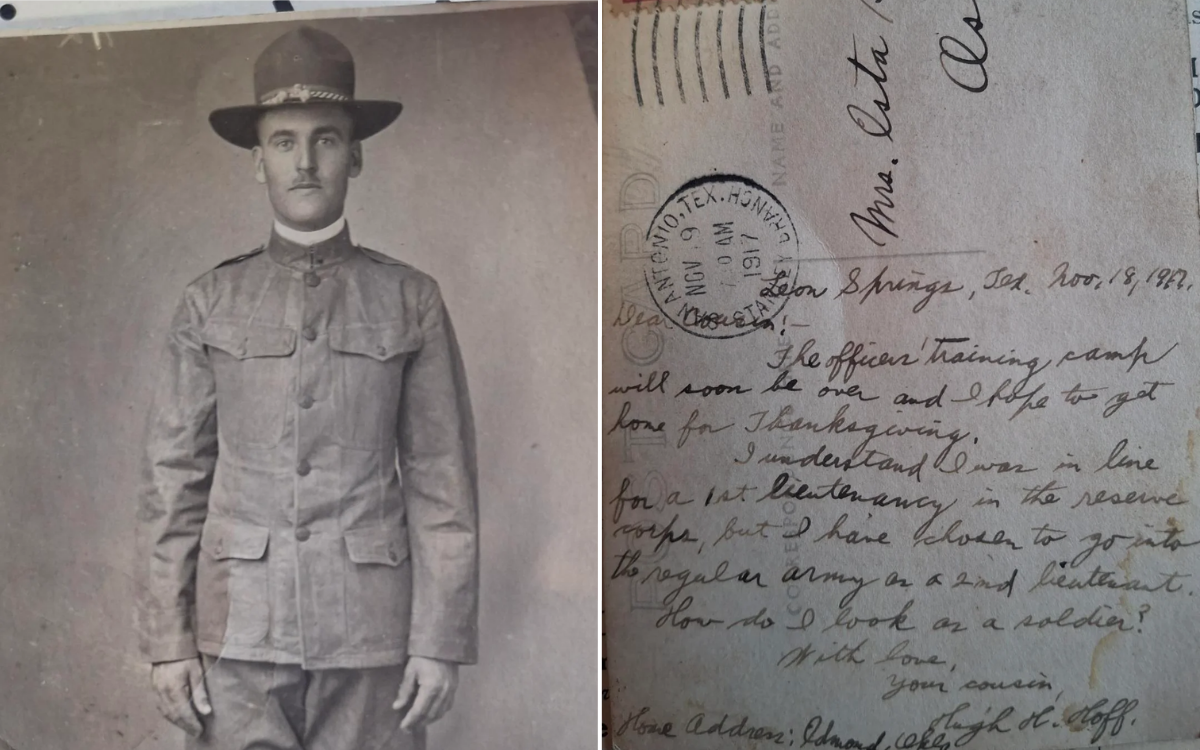 Mrs. Esta
NAME AND ADD
SAN ANTONIO, TEX.
STANLEY BRANCH
NOV 19
AM
1917
POST CARD
CORRESPONDENCE
Leon Springs, Tex. Nov. 18, 1917.
Dear Cousin:—
The officers' training camp
will soon be over and I hope to get
home for Thanksgiving.
I understand I was in line
for a 1st lieutenancy in the reserve
corps, but I have chosen to go into
the regular army as a 2nd lieutenant.
How do I look as a soldier?
With love,
Your cousin,
Hugh H. Hoff.
Home Address: Edmond, Okla.